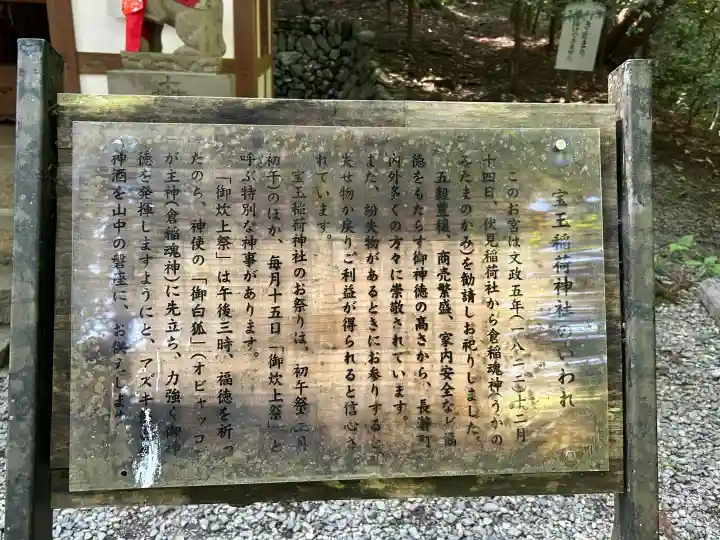 宝玉稲荷神社のいわれ
このお宮は文政五年(一八二二)十二月
十四日、伏見稲荷社から倉稲魂神(うかの
みたまのかみ)を勧請しお祀りしました。
五穀豊穣、商売繁盛、家内安全など福
徳をもたらす御神徳の高さから、長瀞町
内外多くの方々に崇敬されています。
また、紛失物があるときにお参りすると、
失せ物が戻りご利益が得られると信心さ
れています。
宝玉稲荷神社のお祭りは、初午祭(二月
初午)のほか、毎月十五日「御炊上祭」と
呼ぶ特別な神事があります。
「御炊上祭」は午後三時、福徳を祈っ
たのち、神使の「御白狐」(オビャッコ)
が主神(倉稲魂神)に先立ち、力強く御神
徳を発揮しますようにと、アズキ
神酒を山中の磐座に、お供えします。